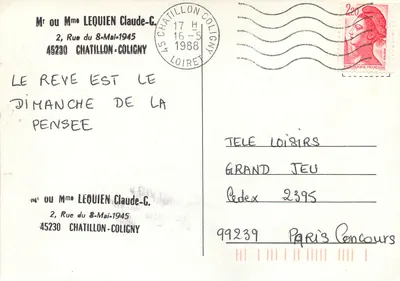 Mr ou Mme LEQUIEN Claude-G.
2, Rue du 8-Mai-1945
45230 CHATILLON-COLIGNY
45 CHATILLON COLIGNY
17 H
16-5
1988
LOIRET
2,20
LE REVE EST LE
DIMANCHE DE LA
PENSEE
TELE LOISIRS
GRAND JEU
Cedex 2395
99239 PARIS Concours
Mr ou Mme LEQUIEN Claude-G.
2, Rue du 8-Mai-1945
45230 CHATILLON-COLIGNY